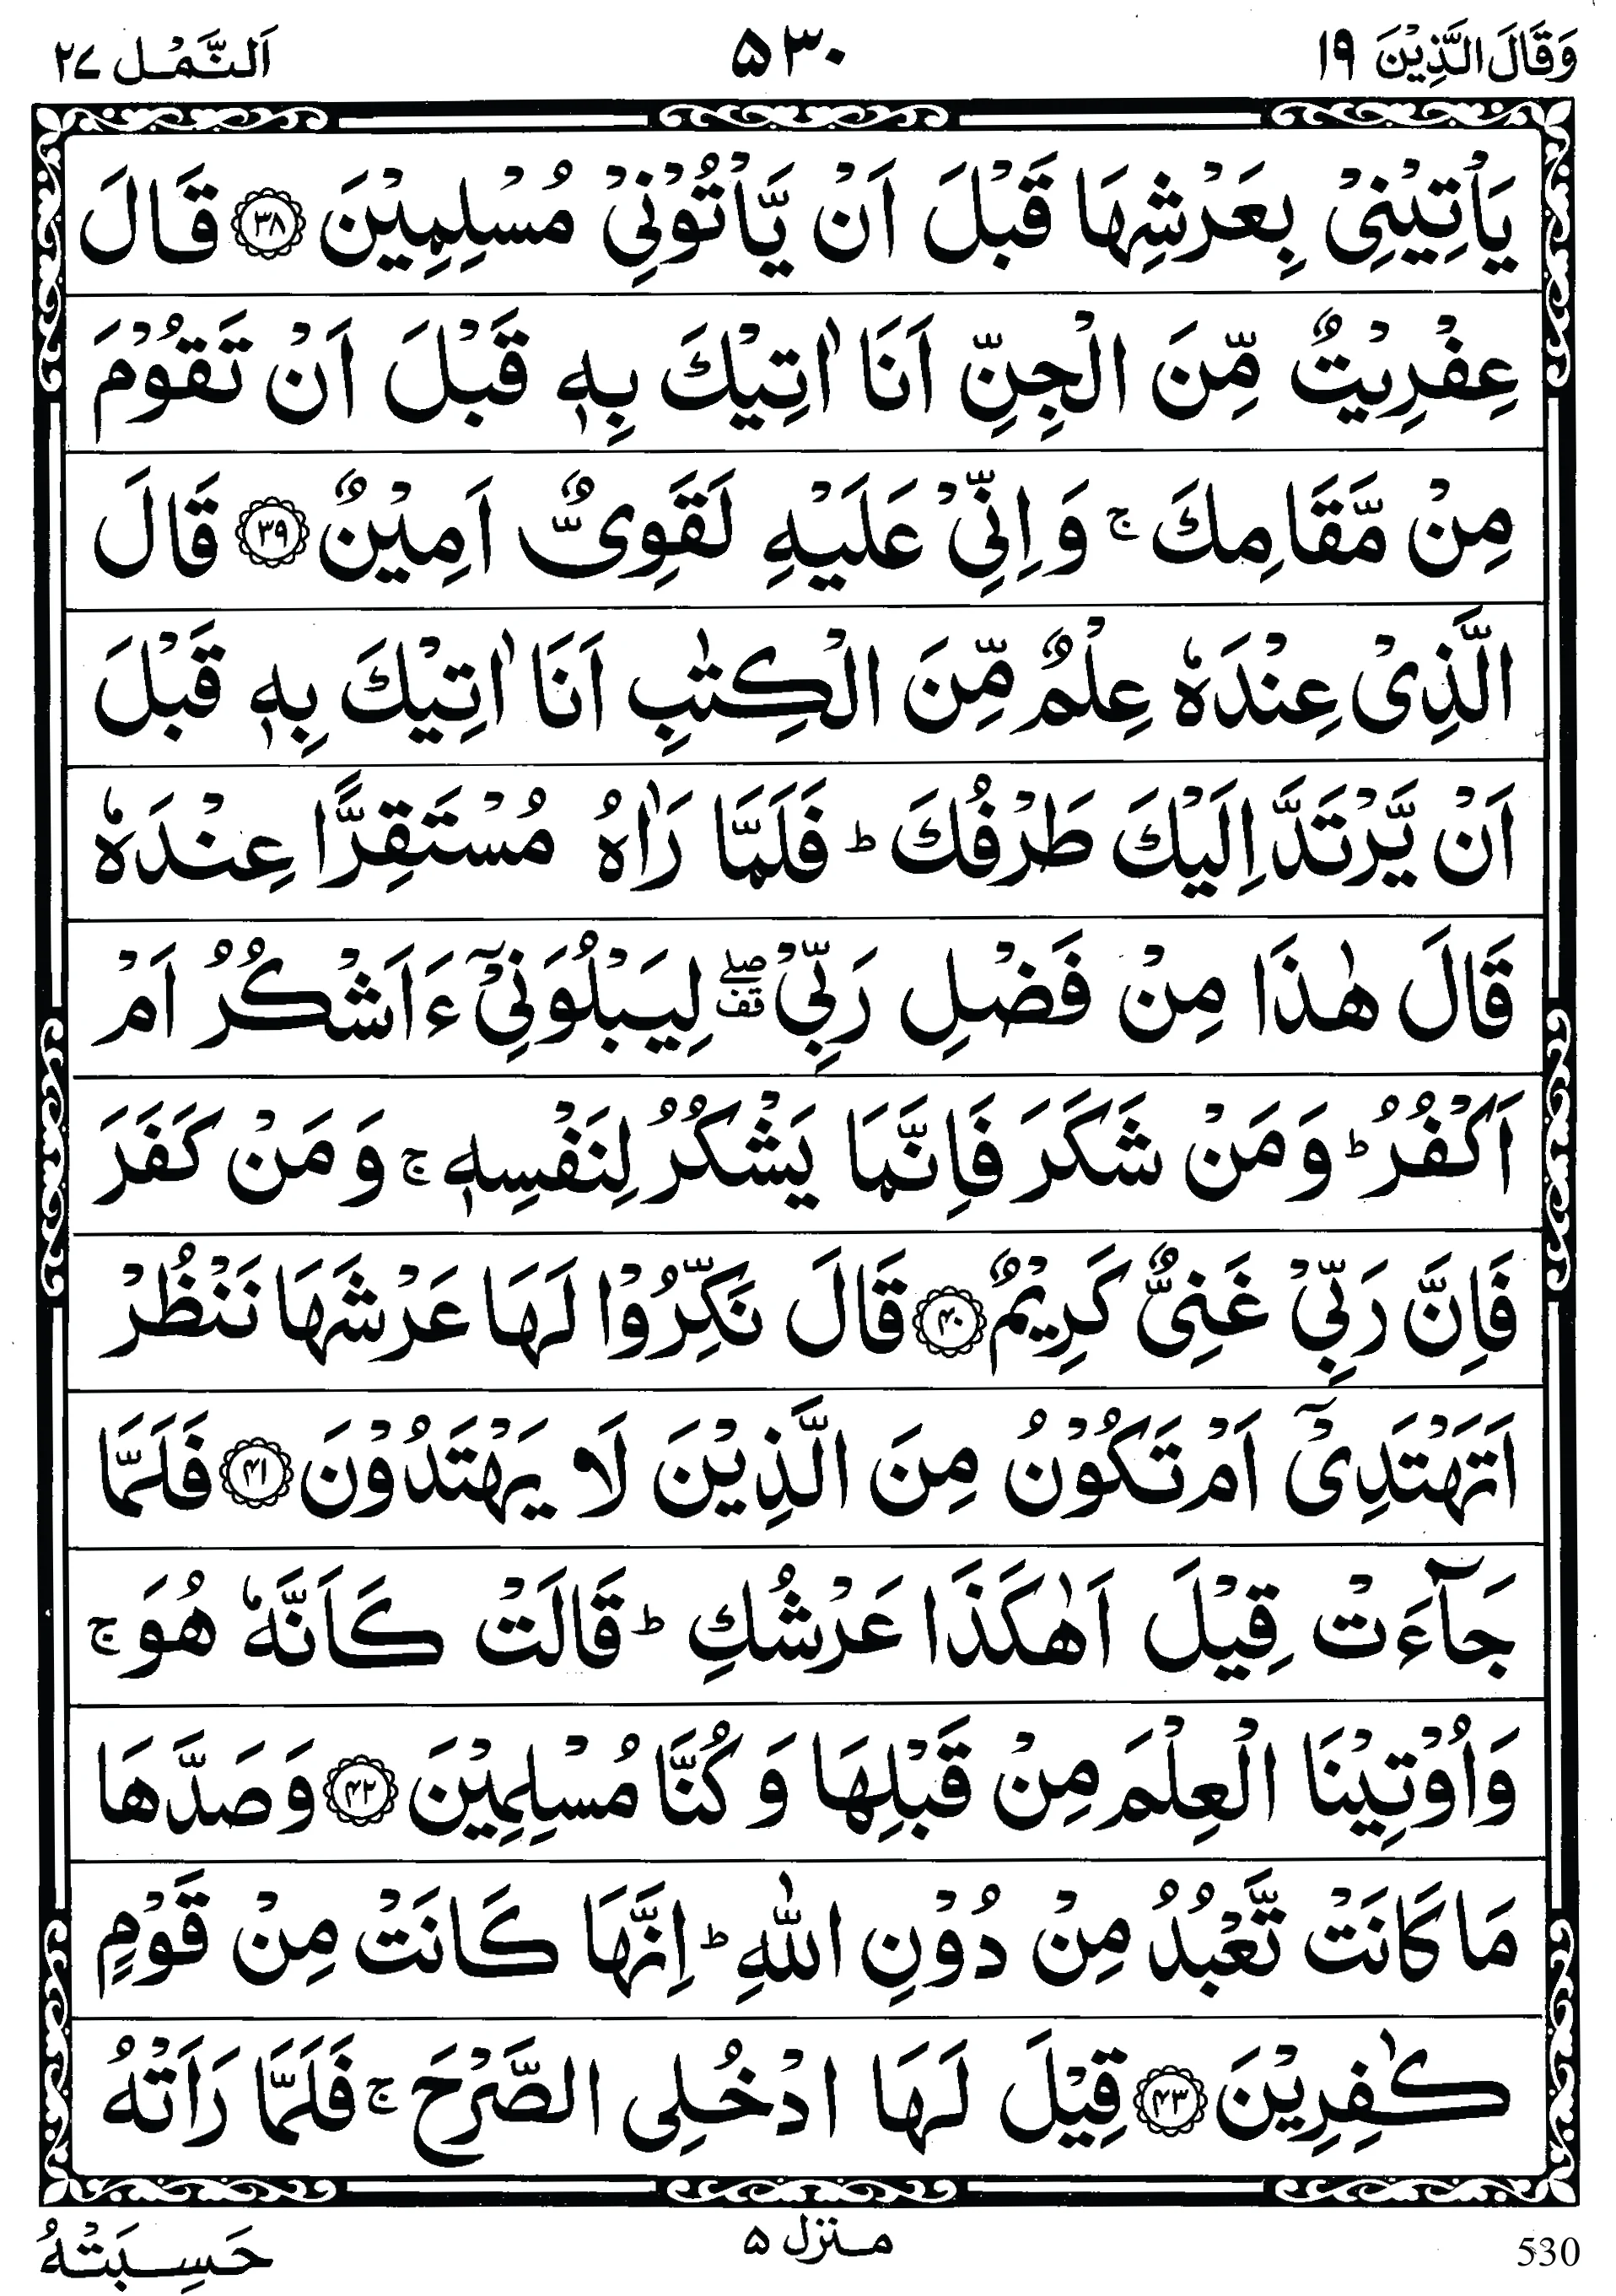 وَقَالَ الَّذِیْنَ ۱۹ ۵۳۰ اَلنَّمْل ۲۷
یَاْتِیْنِیْ بِعَرْشِهَا قَبْلَ اَنْ یَّاْتُوْنِیْ مُسْلِمِیْنَ ﴿۳۸﴾ قَالَ
عِفْرِیْتٌ مِّنَ الْجِنِّ اَنَا اٰتِیْكَ بِهٖ قَبْلَ اَنْ تَقُوْمَ
مِنْ مَّقَامِكَ ۚ وَ اِنِّیْ عَلَیْهِ لَقَوِیٌّ اَمِیْنٌ ﴿۳۹﴾ قَالَ
الَّذِیْ عِنْدَهٗ عِلْمٌ مِّنَ الْكِتٰبِ اَنَا اٰتِیْكَ بِهٖ قَبْلَ
اَنْ یَّرْتَدَّ اِلَیْكَ طَرْفُكَ ؕ فَلَمَّا رَاٰهُ مُسْتَقِرًّا عِنْدَهٗ
قَالَ هٰذَا مِنْ فَضْلِ رَبِّیْ ۖ۫ لِیَبْلُوَنِیْۤ ءَاَشْكُرُ اَمْ
اَكْفُرُ ؕ وَ مَنْ شَكَرَ فَاِنَّمَا یَشْكُرُ لِنَفْسِهٖ ۚ وَ مَنْ كَفَرَ
فَاِنَّ رَبِّیْ غَنِیٌّ كَرِیْمٌ ﴿۴۰﴾ قَالَ نَكِّرُوْا لَهَا عَرْشَهَا نَنْظُرْ
اَتَهْتَدِیْۤ اَمْ تَكُوْنُ مِنَ الَّذِیْنَ لَا یَهْتَدُوْنَ ﴿۴۱﴾ فَلَمَّا
جَآءَتْ قِیْلَ اَهٰكَذَا عَرْشُكِ ؕ قَالَتْ كَاَنَّهٗ هُوَ ۚ
وَ اُوْتِیْنَا الْعِلْمَ مِنْ قَبْلِهَا وَ كُنَّا مُسْلِمِیْنَ ﴿۴۲﴾ وَ صَدَّهَا
مَا كَانَتْ تَّعْبُدُ مِنْ دُوْنِ اللّٰهِ ؕ اِنَّهَا كَانَتْ مِنْ قَوْمٍ
كٰفِرِیْنَ ﴿۴۳﴾ قِیْلَ لَهَا ادْخُلِی الصَّرْحَ ۚ فَلَمَّا رَاَتْهُ
530 منزل ۵ حَسِبَتْهُ